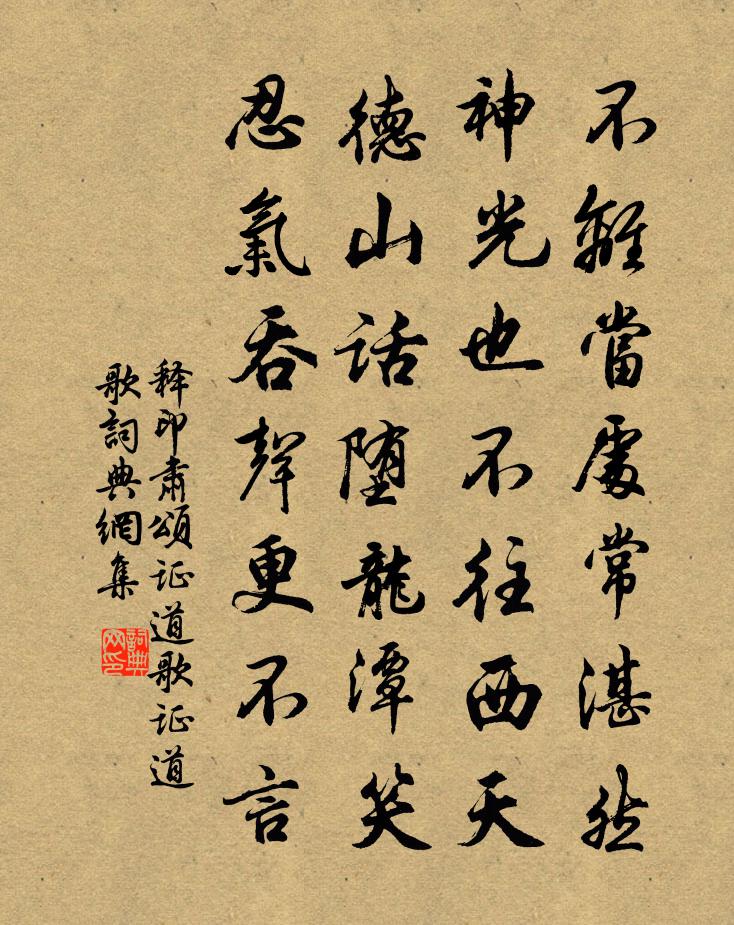 不離當處常湛然
神光也不往西天
德山话堕龍潭笑
忍氣吞聲更不言
释印肃頌证道歌证道
歌詞典網集
詞典
网印